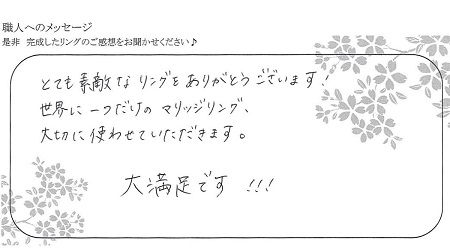 職人へのメッセージ
是非 完成したリングのご感想をお聞かせください♪
とても素敵なリングをありがとうございます!
世界に一つだけのマリッジリング、
大切に使わせていただきます。
大満足です!!!